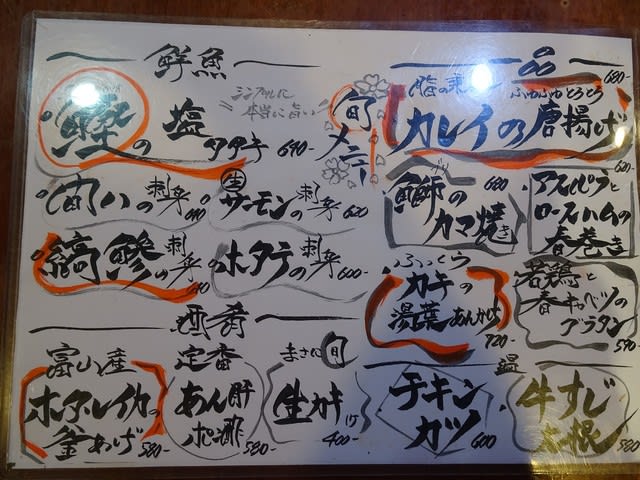 鮮魚
鰹の塩タタキ 690-
シンプルに
本当に旨い
旬メニュー
旬ハの刺身
生サーモンの刺身 620
縞鯵の刺身
ホタテの刺身 600-
酒肴
富山産
ホタルイカの
釜あげ 580-
定番
あん肝
ポン酢 580-
まさに旬
生カキ
400-
一品
脂の乗った ふゆふゆとろとろ 680-
カレイの唐揚げ
ブリ
鰤の
カマ焼き 680
アスパラと
ロースハムの
春巻き 620-
ふっくら
カキの
湯葉あんかけ 720-
若鶏と
春キャベツの
グラタン 590
チキン
カツ 600
温
牛すじ
大根 580